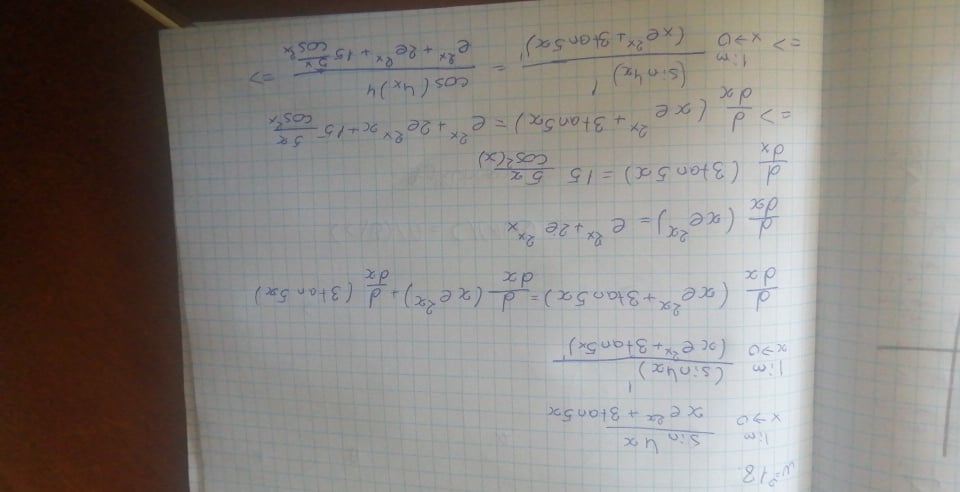 №18.
lim x→0 sin 4x / xe^2x + 3tan5x
lim x→0 (sin4x)' / (xe^2x + 3tan5x)'
d/dx (xe^2x + 3tan5x) = d/dx (xe^2x) + d/dx (3tan5x)
d/dx (xe^2x) = e^2x + 2e^2x x
d/dx (3tan5x) = 15 5x/cos²(x)
=> d/dx (xe^2x + 3tan5x) = e^2x + 2e^2x x + 15 5x/cos²x
=> lim x→0 (sin4x)' / (xe^2x + 3tan5x)' = cos(4x)4 / e^2x + 2e^2x + 15 5x/cos²x =>